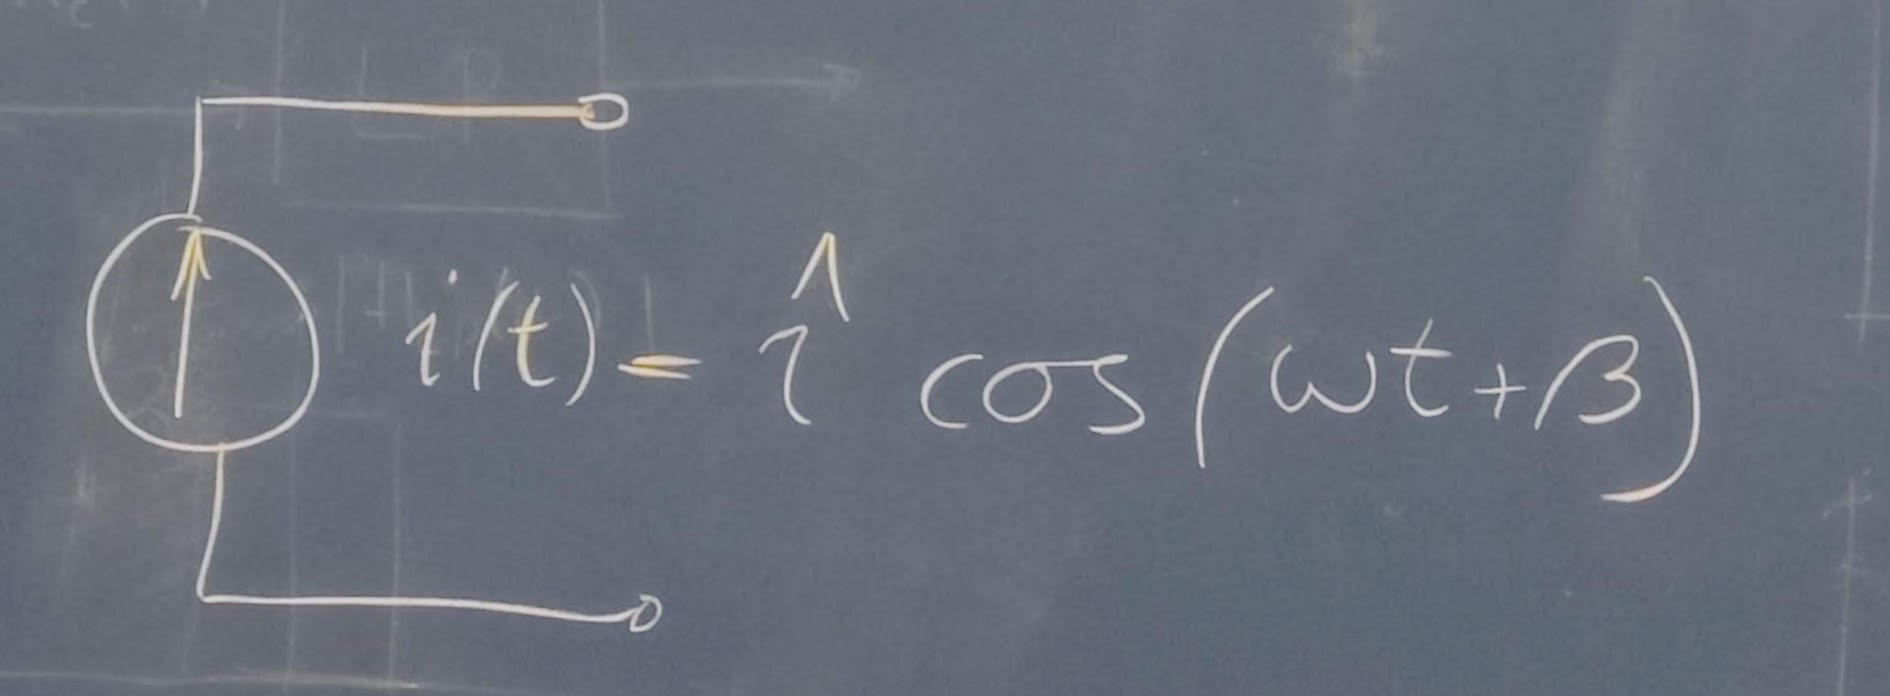 i(t) = î cos(ωt+β)